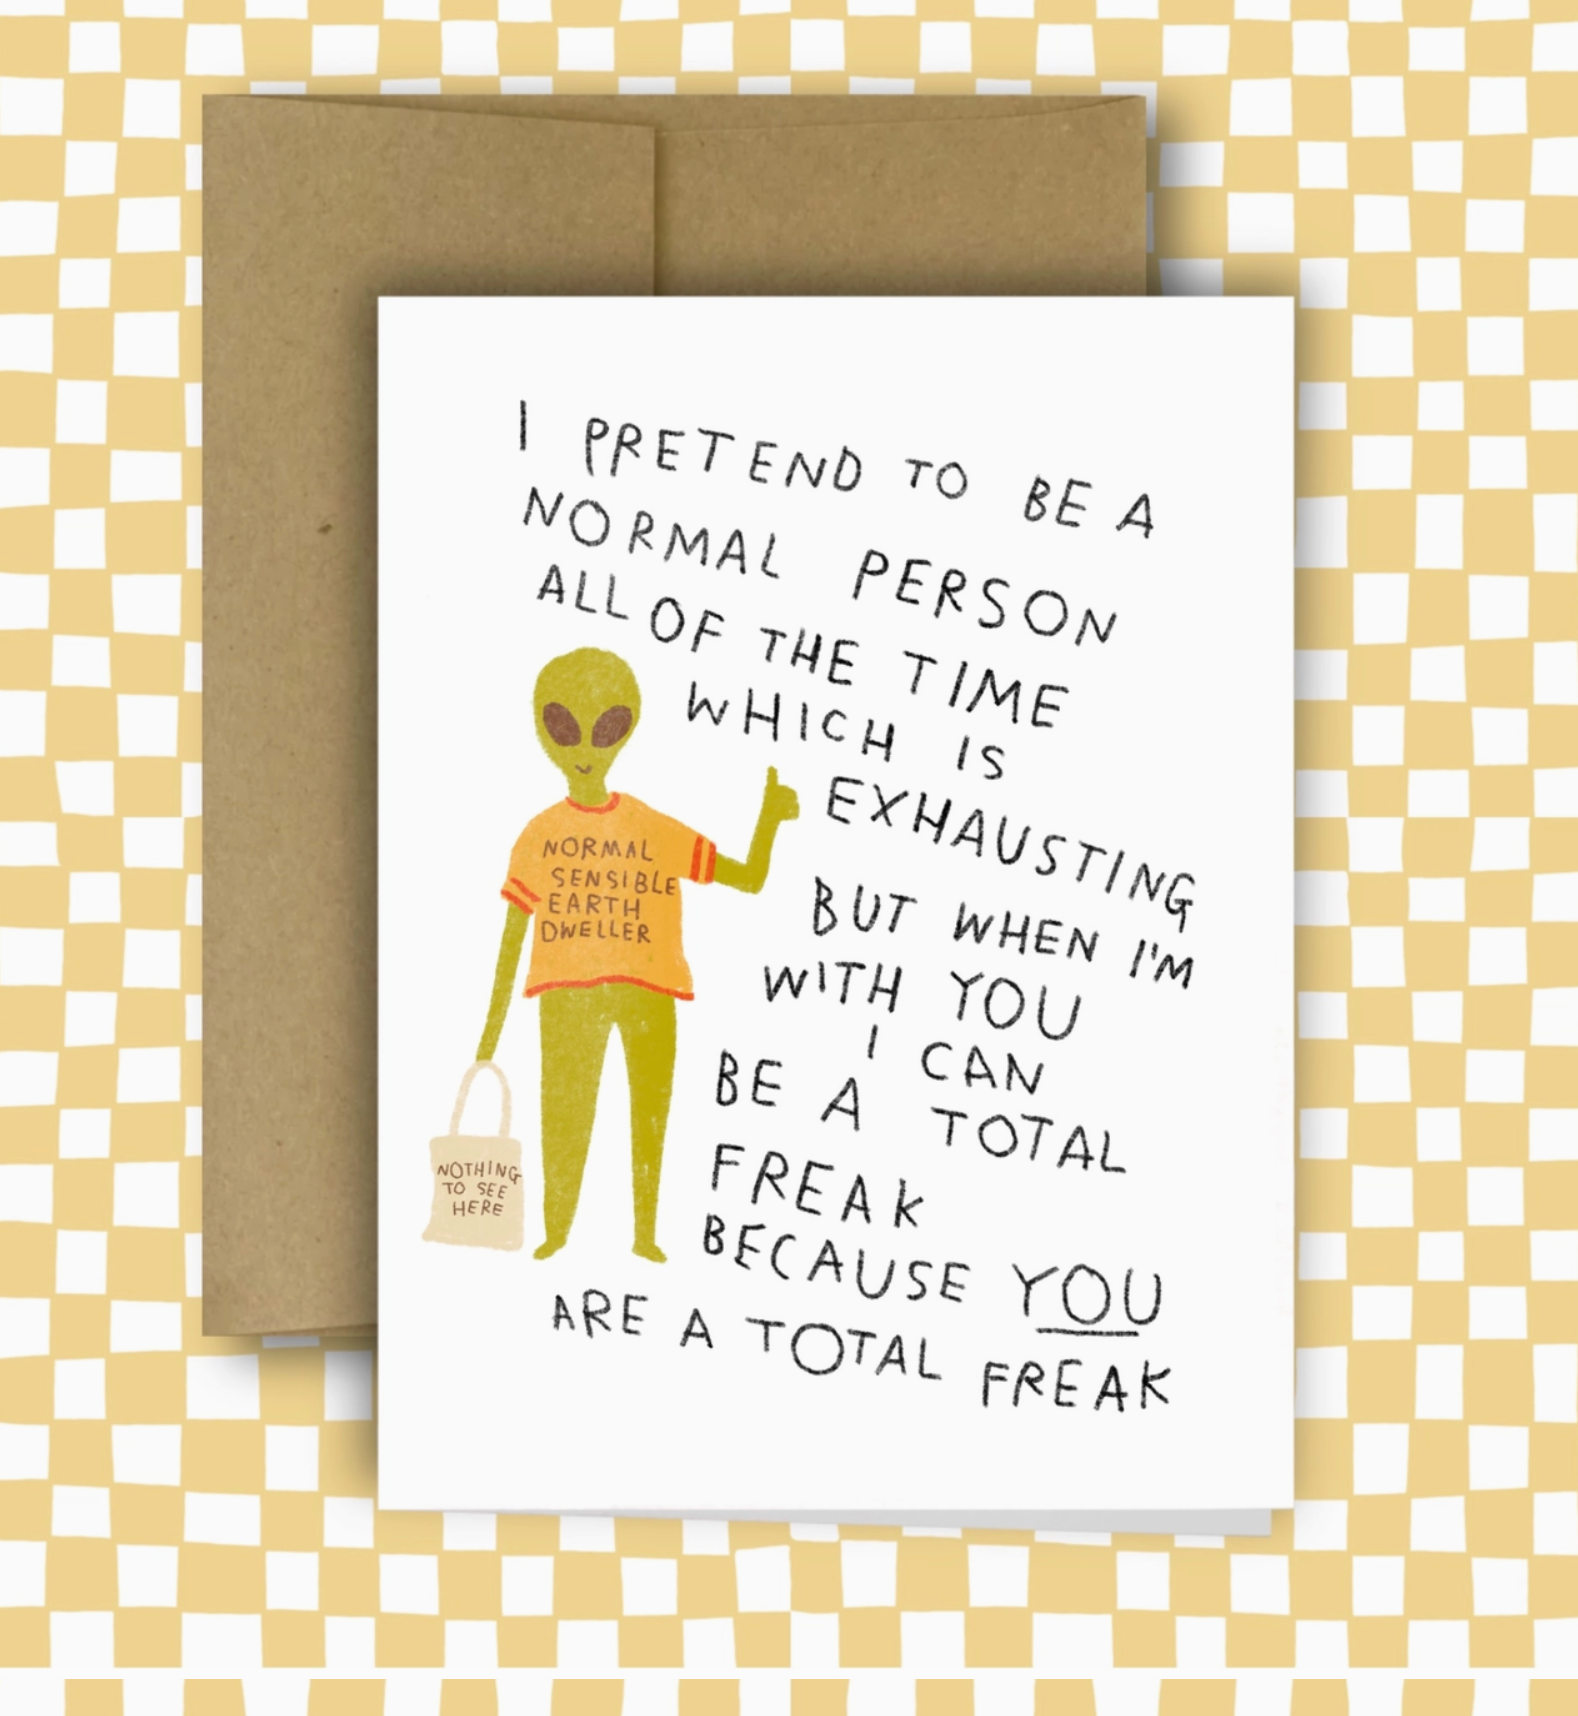 I PRETEND TO BE A
NORMAL PERSON
ALL OF THE TIME
WHICH IS
EXHAUSTING
BUT WHEN I'M
WITH YOU
I CAN
BE A TOTAL
FREAK
BECAUSE YOU
ARE A TOTAL FREAK
NORMAL
SENSIBLE
EARTH
DWELLER
NOTHING
TO SEE
HERE